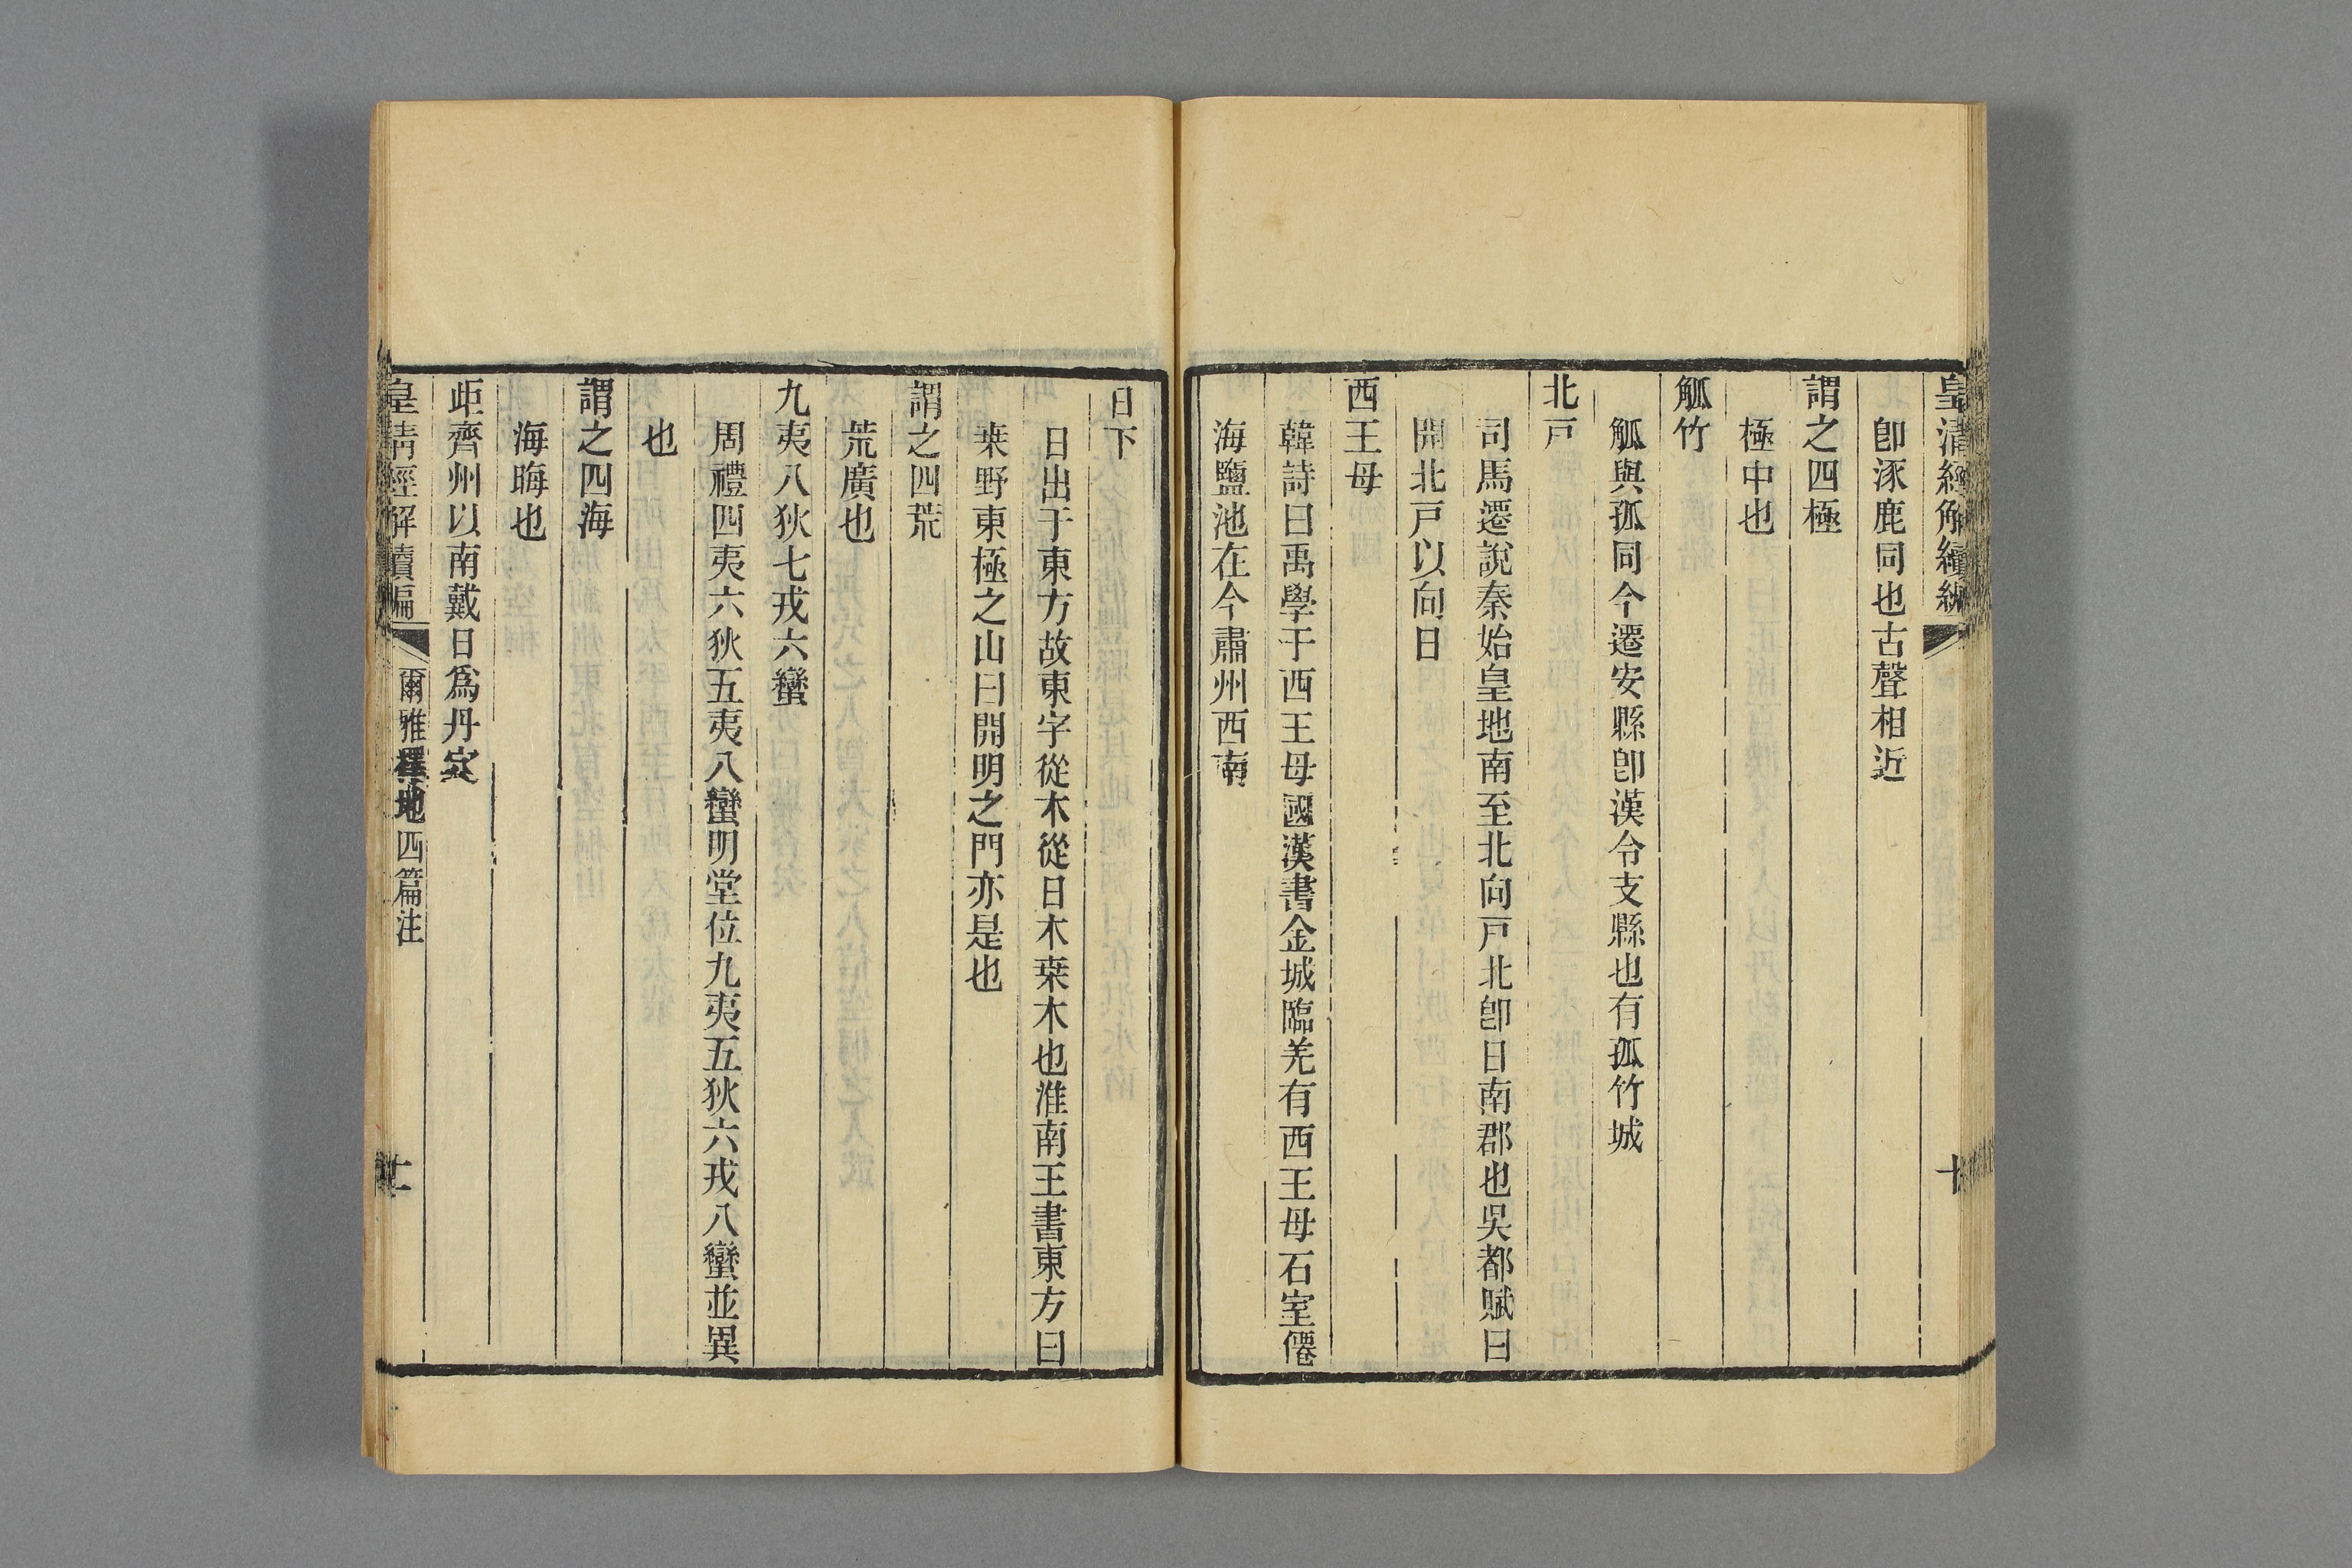 皇清經解續編
十
卽涿鹿同也古聲相近
謂之四極
極中也
觚竹
觚與孤同今遷安縣卽漢令支縣也有孤竹城
北戸
司馬遷說秦始皇地南至北向戸北卽日南郡也吳都賦曰
開北戸以向日
西王母
韓詩曰禹學于西王母國漢書金城臨羌有西王母石室僊
海鹽池在今肅州西南
日下
日出于東方故東字從木從日木桒木也淮南王書東方曰
桒野東極之山曰開明之門亦是也
謂之四荒
荒廣也
九夷八狄七戎六蠻
周禮四夷六狄五夷八蠻明堂位九夷五狄六戎八蠻並異
也
謂之四海
海晦也
岠齊州以南戴日爲丹穴
皇清經解續編
爾雅釋地四篇注